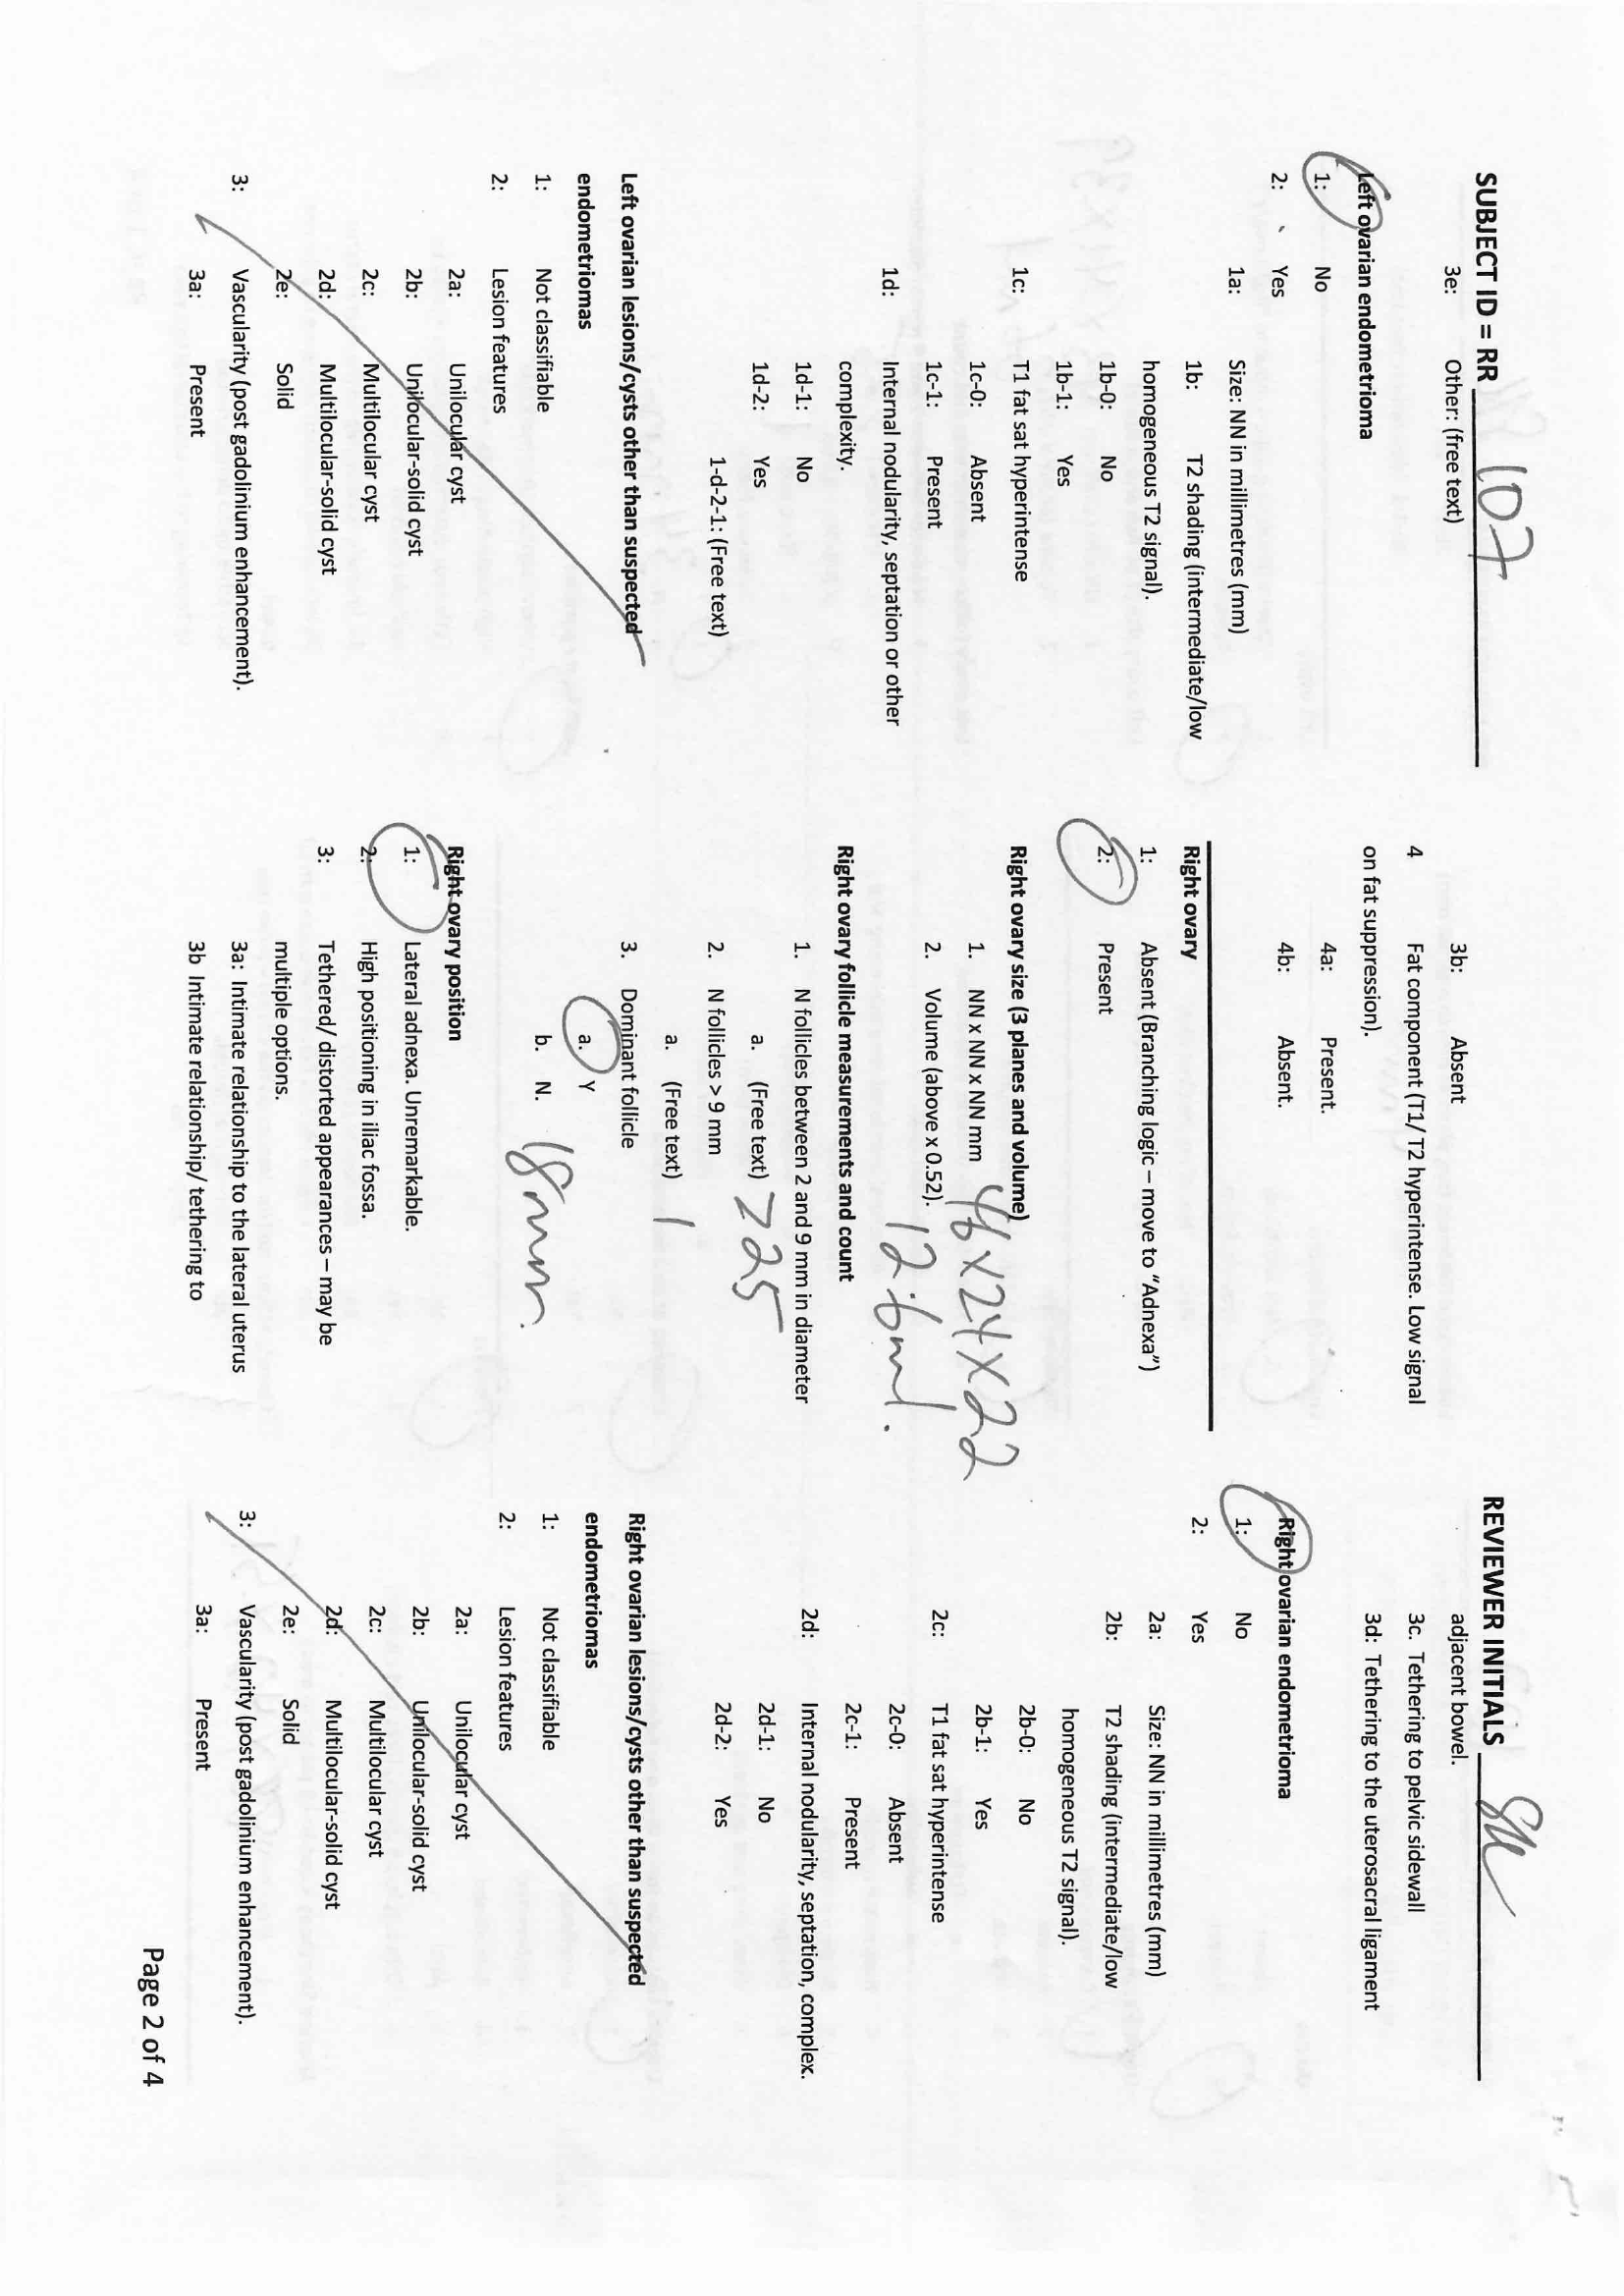 SUBJECT ID = RR 107
3e: Other: (free text)
Left ovarian endometrioma
1: No
2: Yes
1a: Size: NN in millimetres (mm)
1b: T2 shading (intermediate/low
homogeneous T2 signal).
1b-0: No
1b-1: Yes
1c: T1 fat sat hyperintense
1c-0: Absent
1c-1: Present
1d: Internal nodularity, septation or other
complexity.
1d-1: No
1d-2: Yes
1-d-2-1: (Free text)
Left ovarian lesions/cysts other than suspected
endometriomas
1: Not classifiable
2: Lesion features
2a: Unilocular cyst
2b: Unilocular-solid cyst
2c: Multilocular cyst
2d: Multilocular-solid cyst
2e: Solid
3: Vascularity (post gadolinium enhancement).
3a: Present
3b: Absent
4 Fat component (T1/ T2 hyperintense. Low signal
on fat suppression).
4a: Present.
4b: Absent.
Right ovary
1: Absent (Branching logic – move to “Adnexa”)
2: Present
Right ovary size (3 planes and volume)
1. NN x NN x NN mm 46 x 24 x 22
2. Volume (above x 0.52). 12.6ml.
Right ovary follicle measurements and count
1. N follicles between 2 and 9 mm in diameter
a. (Free text) >25
2. N follicles > 9 mm
a. (Free text) 1
3. Dominant follicle
a. Y
b. N. 18mm.
Right ovary position
1: Lateral adnexa. Unremarkable.
2: High positioning in iliac fossa.
3: Tethered/ distorted appearances – may be
multiple options.
3a: Intimate relationship to the lateral uterus
3b Intimate relationship/ tethering to
REVIEWER INITIALS
adjacent bowel.
3c. Tethering to pelvic sidewall
3d: Tethering to the uterosacral ligament
Right ovarian endometrioma
1: No
2: Yes
2a: Size: NN in millimetres (mm)
2b: T2 shading (intermediate/low
homogeneous T2 signal).
2b-0: No
2b-1: Yes
2c: T1 fat sat hyperintense
2c-0: Absent
2c-1: Present
2d: Internal nodularity, septation, complex.
2d-1: No
2d-2: Yes
Right ovarian lesions/cysts other than suspected
endometriomas
1: Not classifiable
2: Lesion features
2a: Unilocular cyst
2b: Unilocular-solid cyst
2c: Multilocular cyst
2d: Multilocular-solid cyst
2e: Solid
3: Vascularity (post gadolinium enhancement).
3a: Present
Page 2 of 4